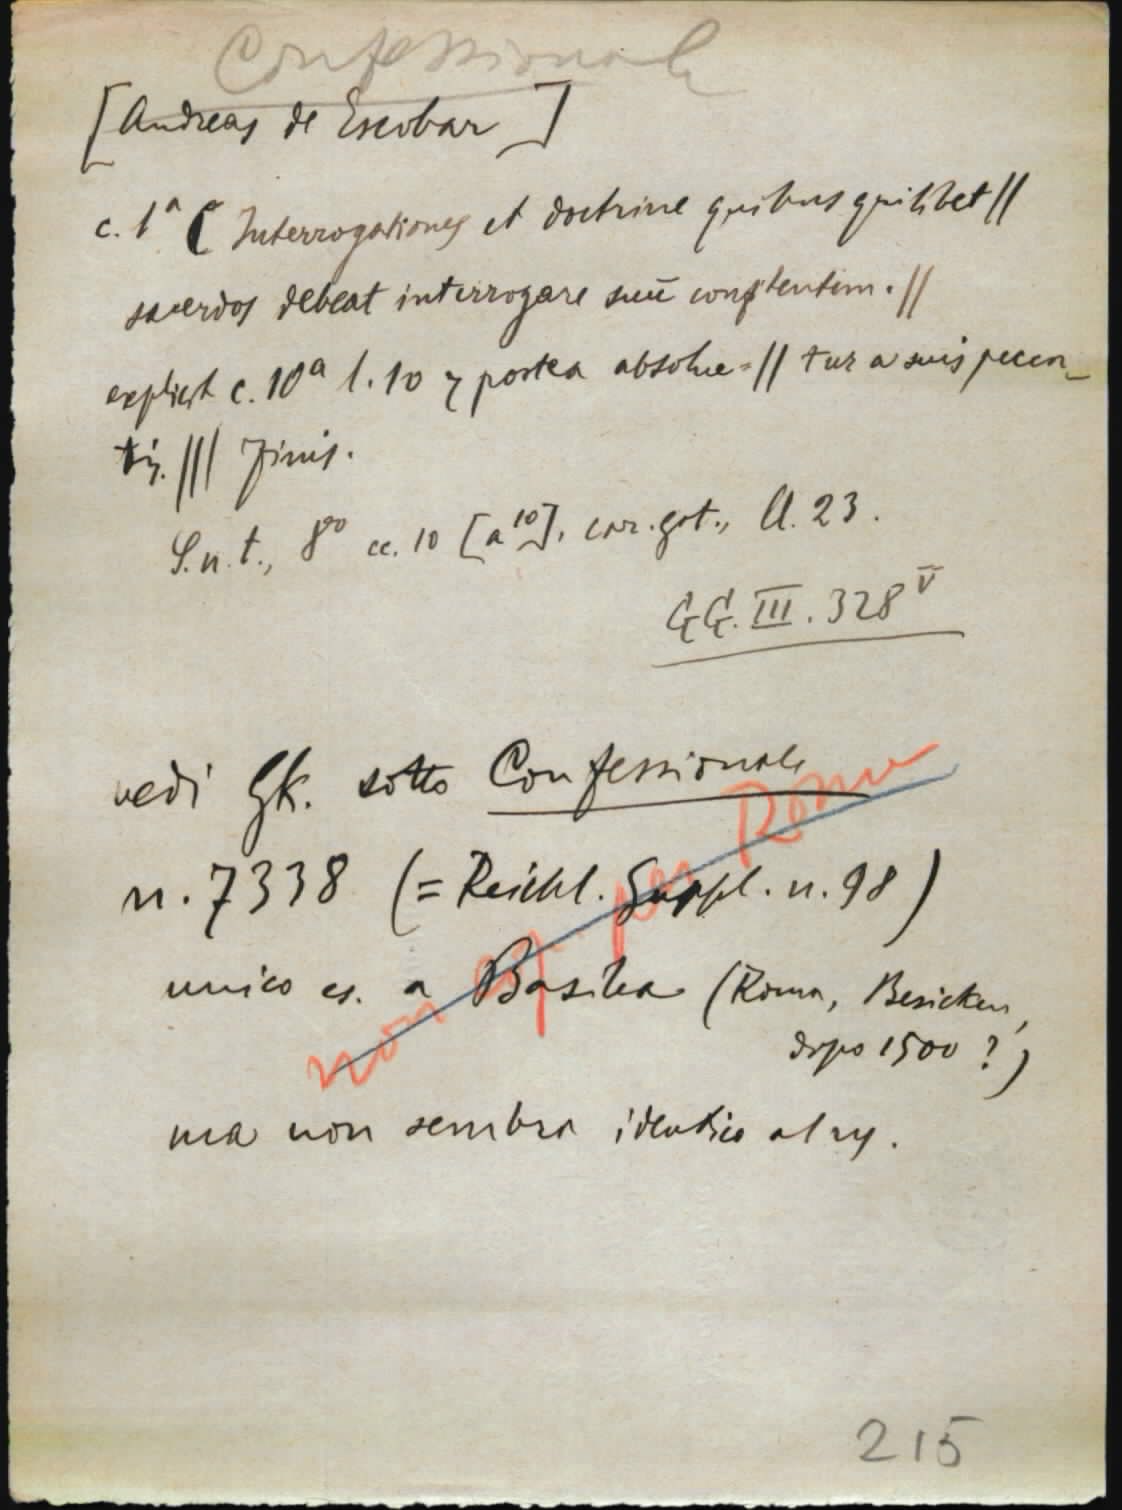 Confessionale
[Andreas de Escobar]
c. 1ª ( Interrogationes et doctrine quibus quilibet //
sacerdos debeat interrogare suū confitentem. //
explicit c. 10ª l. 10 ⁊ postea absolue= // tur a suis pecca_
tis. /// Finis.
S. n. t., 8º cc. 10 [a¹⁰]. car. got., ll. 23.
GG. III. 328ᵛ
vedi GK. sotto Confessionale
n. 7338 (= Reichl. Suppl. n. 98)
unico es. a Basilea (Roma, Besicken,
dopo 1500 ?)
ma non sembra identico al ns.
non per Roma
215